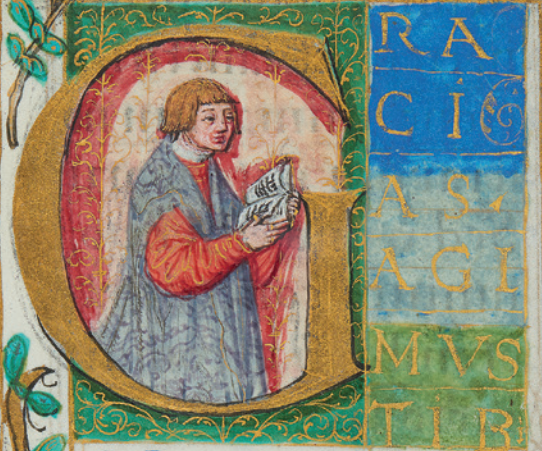 GRA
CI
AS
AGI
MVS
TIB